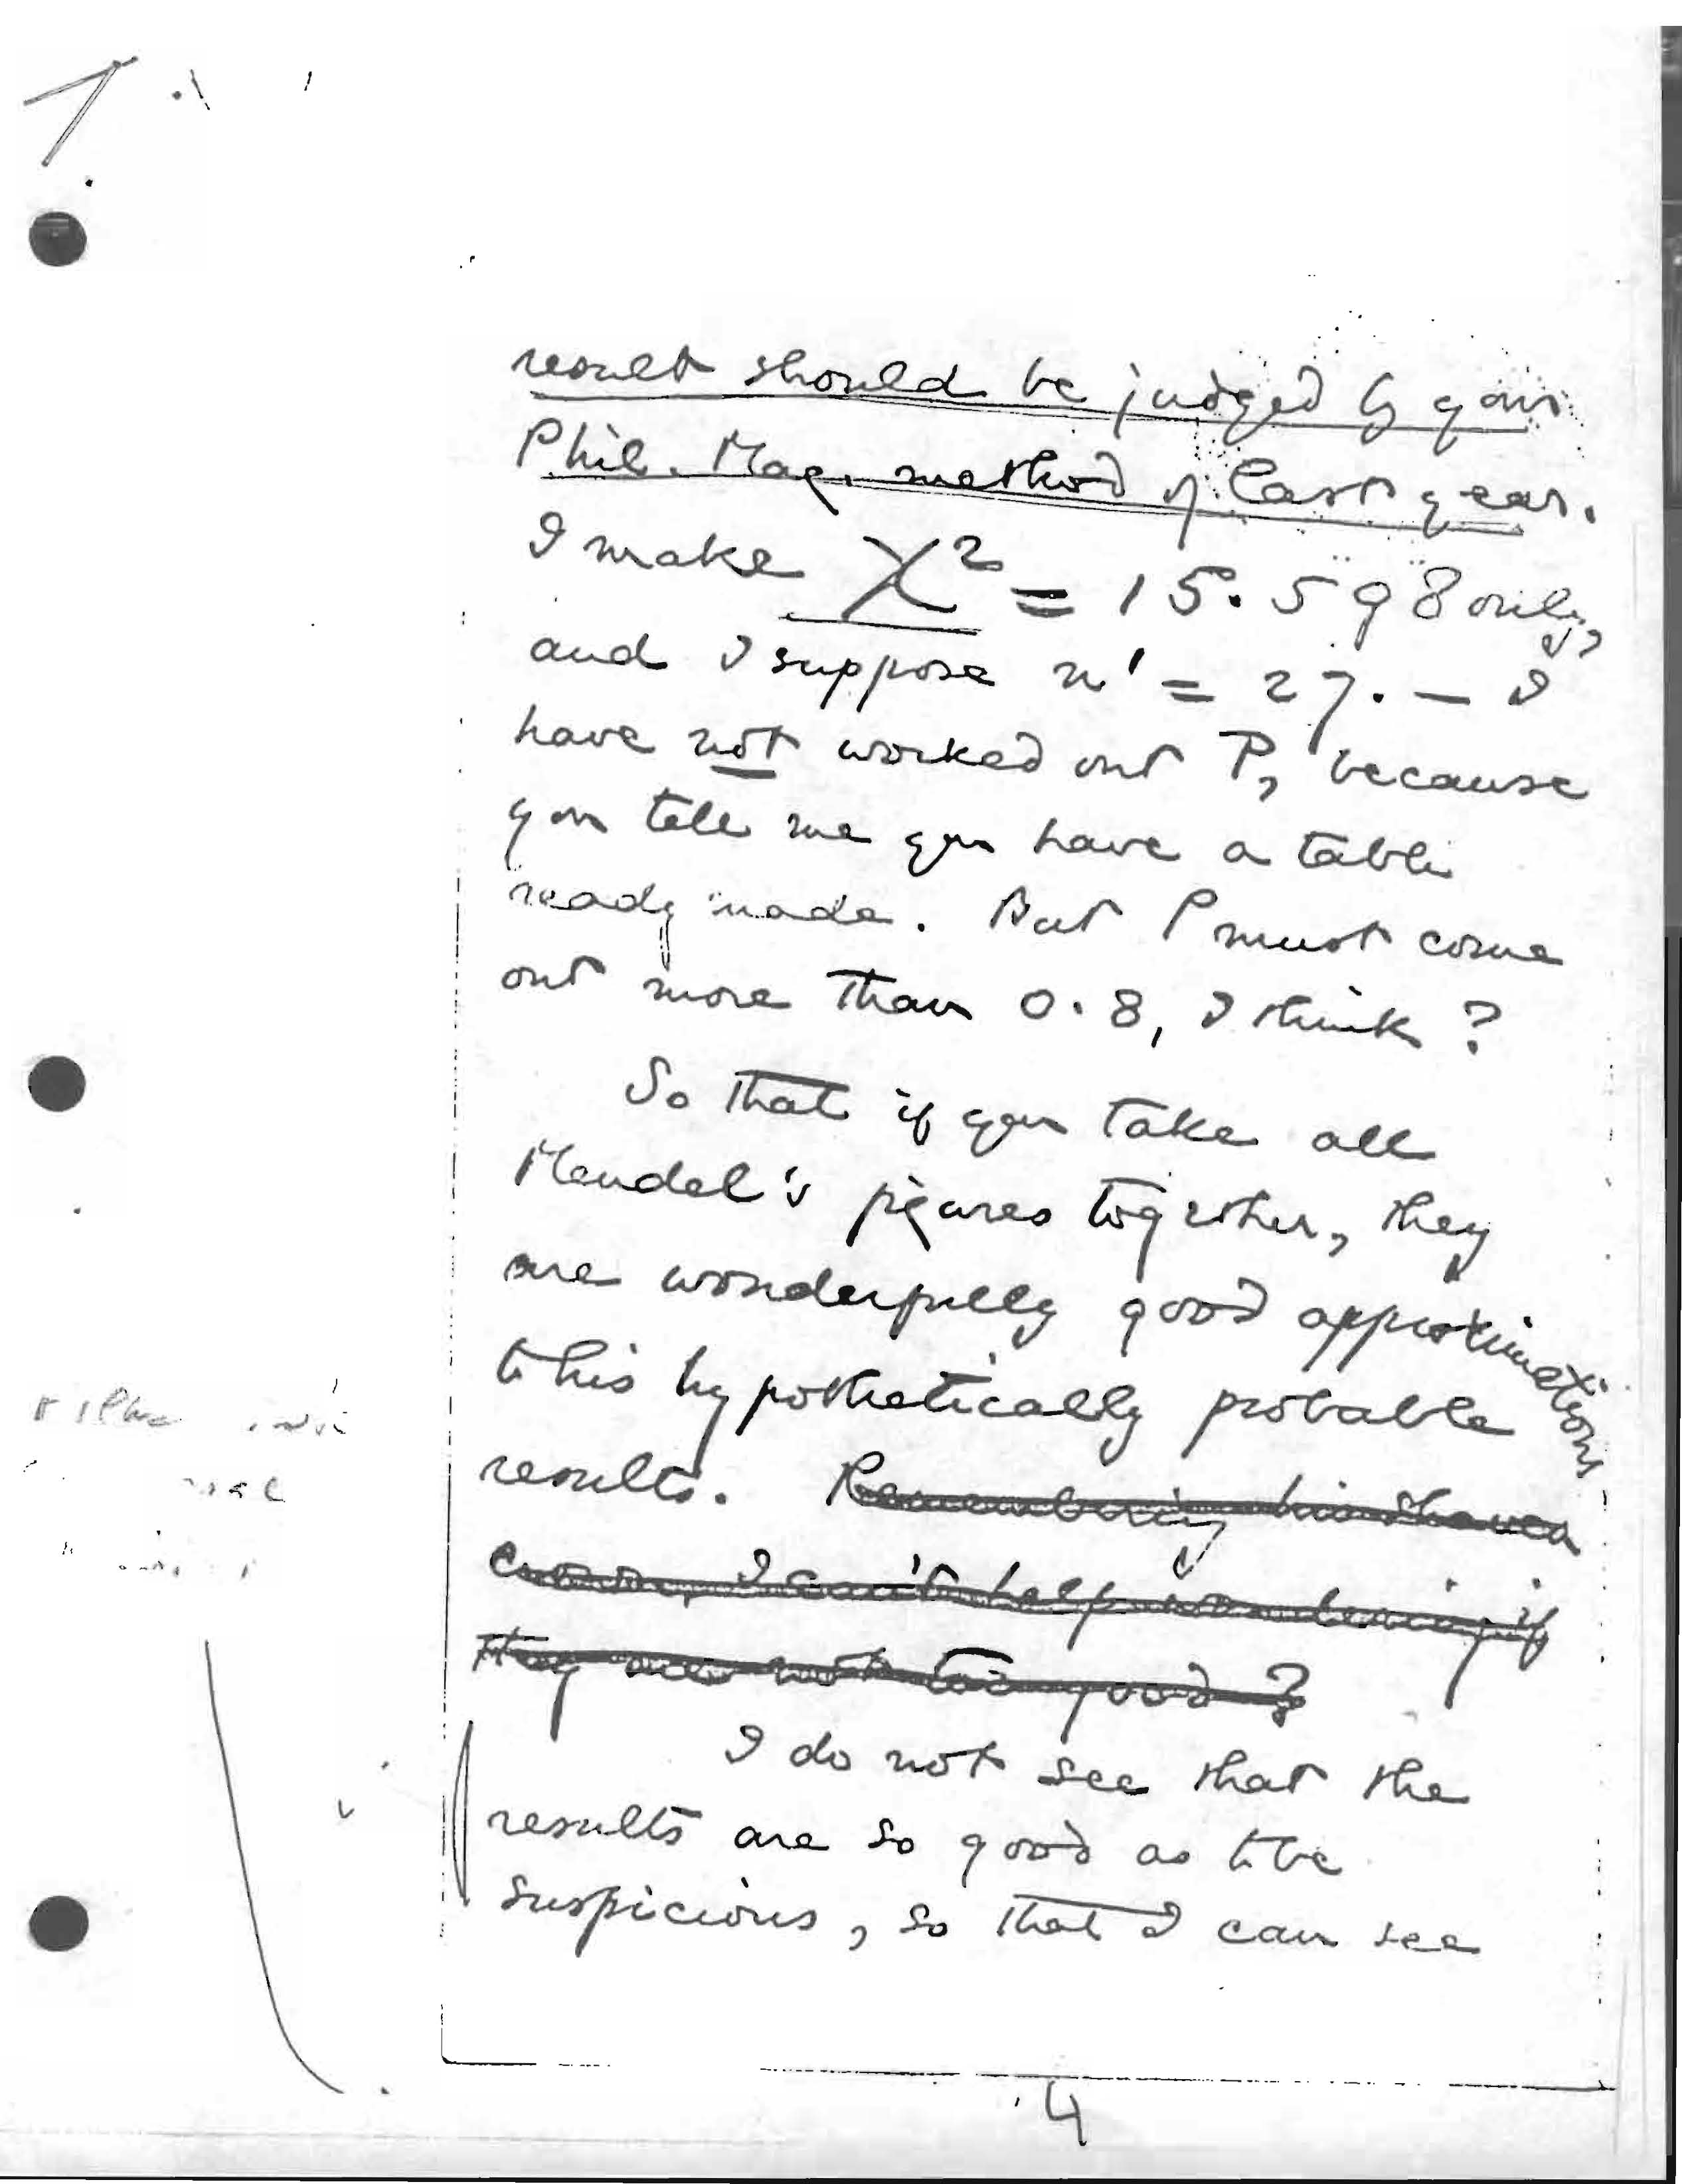 result should be judged by your
Phil. Mag. method of last year.
I make χ² = 15.598 only,
and I suppose n' = 27. — I
have not worked out P, because
you tell me you have a table
ready made. But P must come
out more than 0.8, I think?
So that if you take all
Mendel's figures together, they
are wonderfully good approximations
to his hypothetically probable
results. Remembering his shaven
crown, I can't help wondering if
they are not too good?
I do not see that the
results are so good as to be
suspicious, so that I can see
4